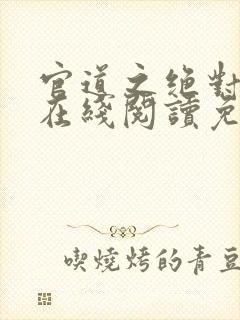 官道之絕對
在綫閱讀免
喫燒烤的青豆